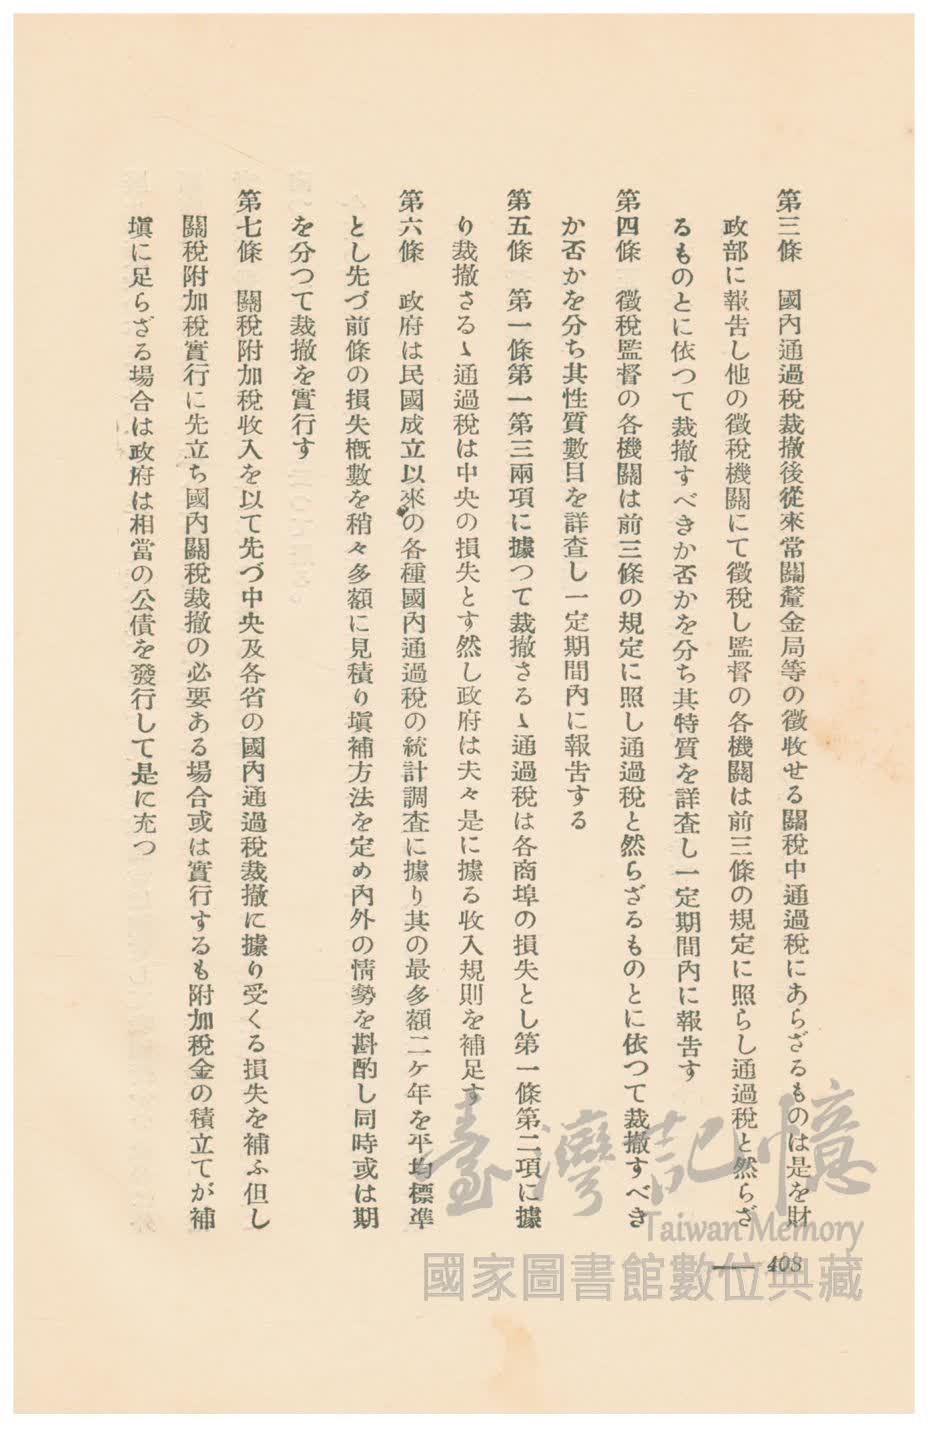 第三條　國內通過稅裁撤後從來常關釐金局等の徵收せる關稅中通過稅にあらざるものは是を財
政部に報告し他の徵稅機關にて徵稅し監督の各機關は前三條の規定に照らし通過稅と然らざ
るものとに依つて裁撤すべきか否かを分ち其特質を詳査し一定期間內に報告す
第四條　徵稅監督の各機關は前三條の規定に照し通過稅と然らざるものとに依つて裁撤すべき
か否かを分ち其性質數目を詳査し一定期間內に報告する
第五條　第一條第一第三兩項に據つて裁撤さるゝ通過稅は各商埠の損失とし第一條第二項に據
り裁撤さるゝ通過稅は中央の損失とす然し政府は夫々是に據る收入規則を補足す
第六條　政府は民國成立以來の各種國內通過稅の統計調査に據り其の最多額二ケ年を平均標準
とし先づ前條の損失槪數を稍々多額に見積り塡補方法を定め內外の情勢を斟酌し同時或は期
を分つて裁撤を實行す
第七條　關稅附加稅收入を以て先づ中央及各省の國內通過稅裁撤に據り受くる損失を補ふ但し
關稅附加稅實行に先立ち國內關稅裁撤の必要ある場合或は實行するも附加稅金の積立てが補
塡に足らざる場合は政府は相當の公債を發行して是に充つ
408
臺灣記憶
Taiwan Memory
國家圖書館數位典藏